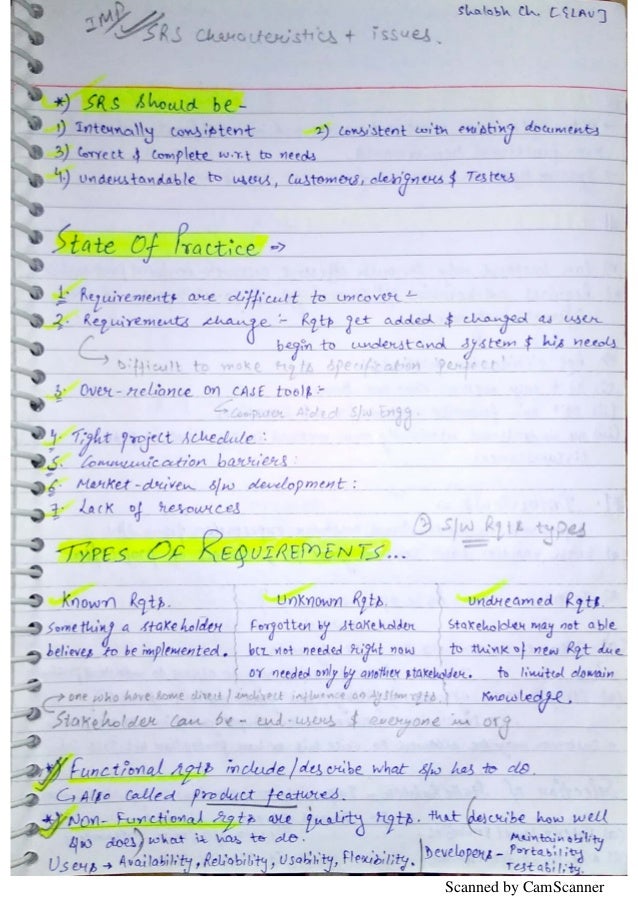 Shalabh Ch. [SLAU]
IMP SRS Characteristics + issues.
*) SRS should be -
1) Internally consistent 2) Consistent with existing documents
3) Correct & Complete w.r.t to needs
4.) Understandable to users, Customers, designers & Testers
State Of Practice ->
1. Requirements are difficult to uncover -
2. Requirements change :- Rqts get added & changed as user
begin to understand system & his needs
Difficult to make rqts specification 'perfect'
3. Over-reliance on CASE tools :-
Computer Aided S/w Engg.
4. Tight project schedule :
5. Communication barriers :
6. Market-driven s/w development :
7. Lack of resources
② S/w Rqts types
TYPES OF REQUIREMENTS...
Known Rqts.
Something a stakeholder
believes to be implemented.
Unknown Rqts.
Forgotten by stakeholder
bcz not needed right now
or needed only by another stakeholder.
Undreamed Rqts.
Stakeholder may not able
to think of new Rqt due
to limited domain
Knowledge.
→ one who have some direct/indirect influence on system rqts.
Stakeholder can be - end-users & everyone in org
*) Functional rqts include/describe what s/w has to do.
↳ Also called product features.
*) Non-Functional rqts are quality rqts. that (describe how well
s/w does) what it has to do.
Users → Availability, Reliability, Usability, Flexibility.
Developers - Maintainability
Portability
Testability.
Scanned by CamScanner